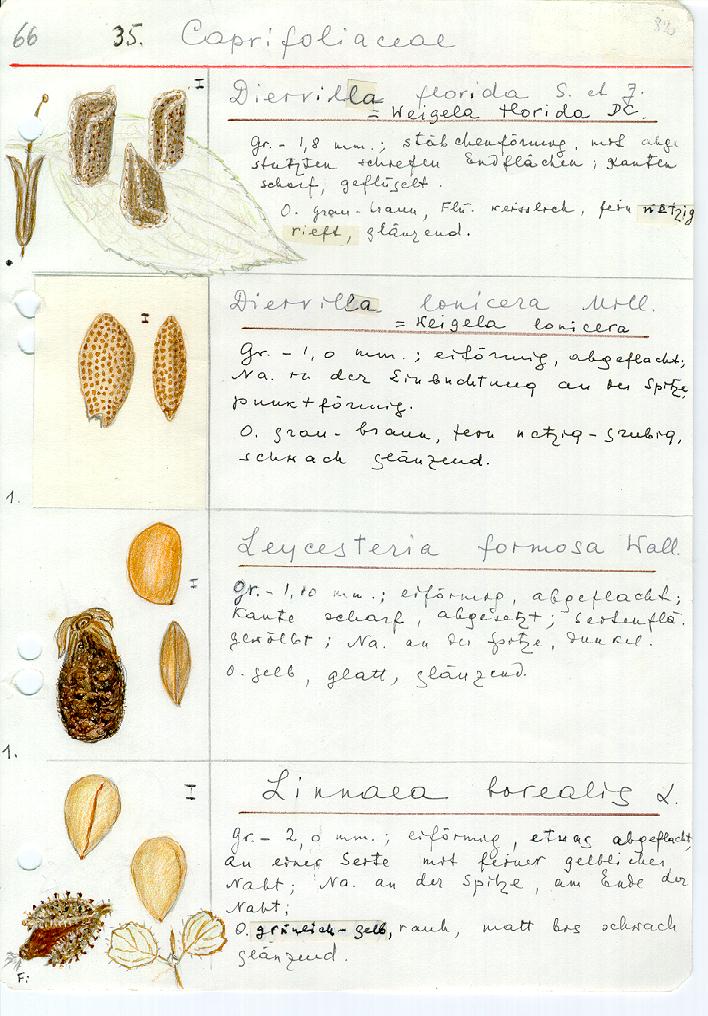 66 35. Caprifoliaceae
I
Diervilla florida S. et Z.
= Weigela florida DC.
Gr. - 1,8 mm.; stäbchenförmig, mit abge
stutzten schiefen Endflächen; Kanten
scharf, geflügelt.
O. grau-braun, Flü. weisslich, fein netzig
rieft, glänzend.
I
Diervilla lonicera Mill.
= Weigela lonicera
Gr. - 1,0 mm.; eiförmig, abgeflacht;
Na. in der Einbuchtung an der Spitze,
punktförmig.
O. grau-braun, fein netzig-grubig,
schwach glänzend.
1.
Leycesteria formosa Wall.
I
Gr. - 1,10 mm.; eiförmig, abgeflacht;
Kante scharf, abgesetzt; Seitenflä.
gewölbt; Na. an der Spitze, dunkel.
O. gelb, glatt, glänzend.
1.
I
Linnaea borealis L.
Gr. - 2,0 mm.; eiförmig, etwas abgeflacht,
an einer Seite mit feiner gelblicher
Naht; Na. an der Spitze, am Ende der
Naht;
O. grünlich-gelb, rauh, matt bis schwach
glänzend.
Fi